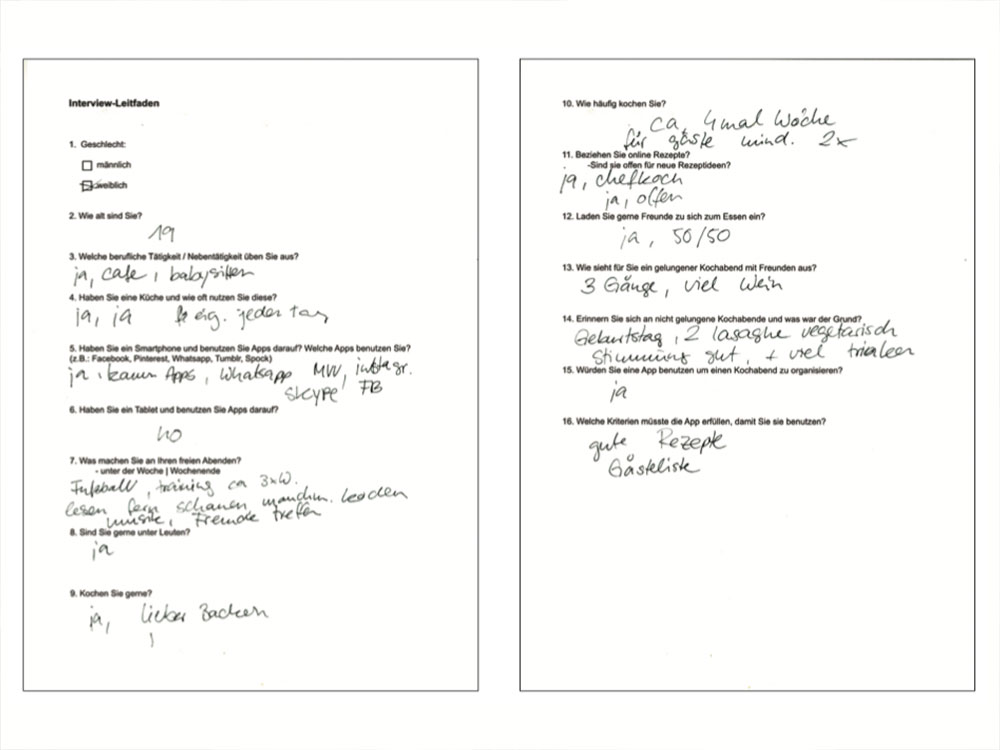 Interview-Leitfaden
1. Geschlecht:
männlich
weiblich
2. Wie alt sind Sie?
19
3. Welche berufliche Tätigkeit / Nebentätigkeit üben Sie aus?
ja, cafe, babysitten
4. Haben Sie eine Küche und wie oft nutzen Sie diese?
ja, ja eig. jeden tag
5. Haben Sie ein Smartphone und benutzen Sie Apps darauf? Welche Apps benutzen Sie?
(z.B.: Facebook, Pinterest, Whatsapp, Tumblr, Spock)
ja, kaum Apps, Whatsapp MW, instagr.
skype, FB
6. Haben Sie ein Tablet und benutzen Sie Apps darauf?
no
7. Was machen Sie an Ihren freien Abenden?
- unter der Woche | Wochenende
Fußball, training ca 3xW.
lesen fern schauen manchm.
musik, Freunde treffen
8. Sind Sie gerne unter Leuten?
ja
9. Kochen Sie gerne?
ja, lieber Backen
10. Wie häufig kochen Sie?
ca. 4mal Woche
für gäste mind. 2x
11. Beziehen Sie online Rezepte?
-Sind sie offen für neue Rezeptideen?
ja, chefkoch
ja, offen
12. Laden Sie gerne Freunde zu sich zum Essen ein?
ja, 50/50
13. Wie sieht für Sie ein gelungener Kochabend mit Freunden aus?
3 Gänge, viel Wein
14. Erinnern Sie sich an nicht gelungene Kochabende und was war der Grund?
Geburtstag, 2 lasagne vegetarisch
Stimmung gut, + viel trinken
15. Würden Sie eine App benutzen um einen Kochabend zu organisieren?
ja
16. Welche Kriterien müsste die App erfüllen, damit Sie sie benutzen?
gute Rezepte
Gästeliste